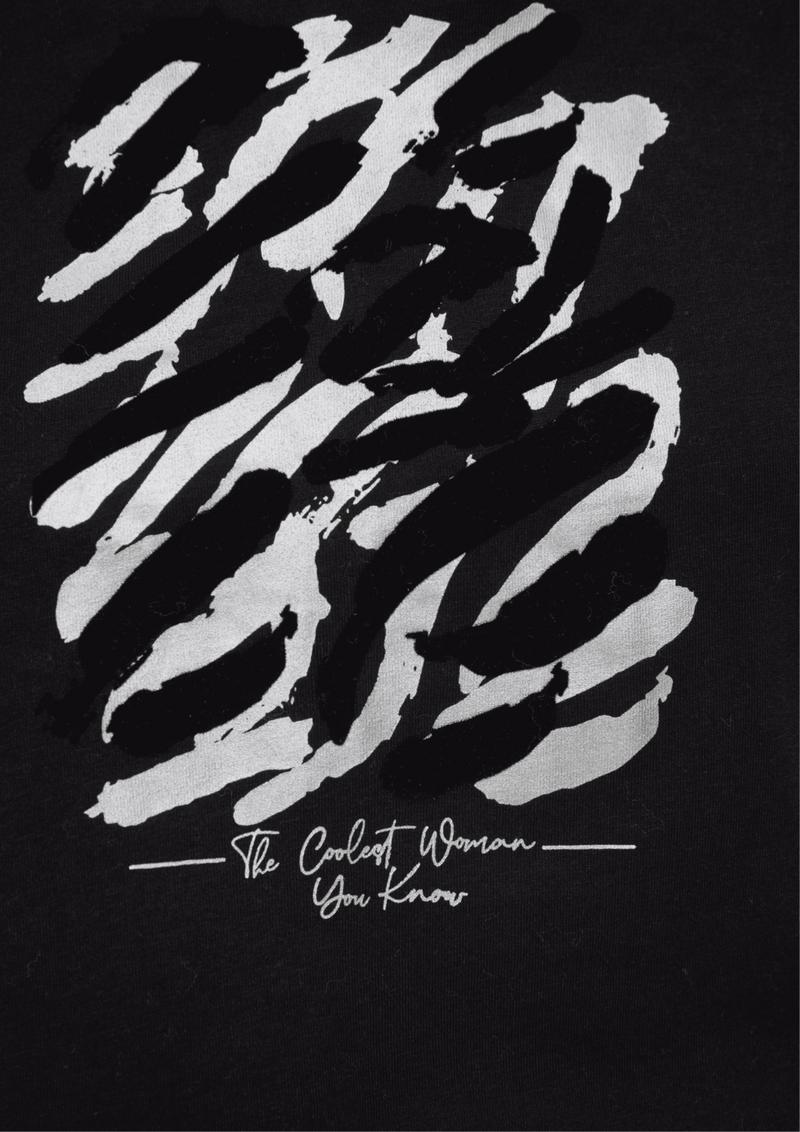 The Coolest Woman
You Know